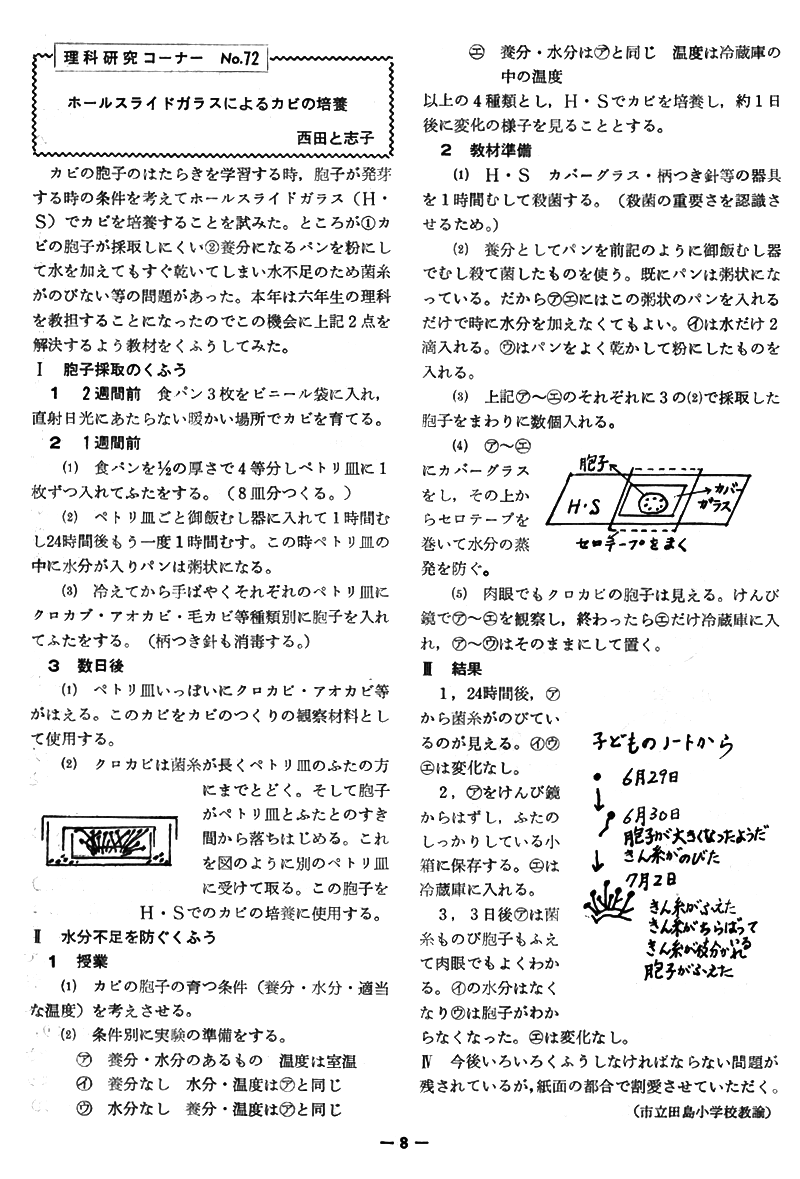 理科研究コーナー No.72
ホールスライドガラスによるカビの培養
西田と志子
カビの胞子のはたらきを学習する時，胞子が発芽
する時の条件を考えてホールスライドガラス（H・
S）でカビを培養することを試みた。ところが①カ
ビの胞子が採取しにくい②養分になるパンを粉にし
て水を加えてもすぐ乾いてしまい水不足のため菌糸
がのびない等の問題があった。本年は六年生の理科
を教担することになったのでこの機会に上記２点を
解決するよう教材をくふうしてみた。
Ⅰ 胞子採取のくふう
1 2週間前 食パン３枚をビニール袋に入れ，
直射日光にあたらない暖かい場所でカビを育てる。
2 1週間前
⑴ 食パンを⅛の厚さで４等分しペトリ皿に１
枚ずつ入れてふたをする。（８皿分つくる。）
⑵ ペトリ皿ごと御飯むし器に入れて１時間む
し24時間後もう一度１時間むす。この時ペトリ皿の
中に水分が入りパンは粥状になる。
⑶ 冷えてから手ばやくそれぞれのペトリ皿に
クロカブ・アオカビ・毛カビ等種類別に胞子を入れ
てふたをする。（柄つき針も消毒する。）
3 数日後
⑴ ペトリ皿いっぱいにクロカビ・アオカビ等
がはえる。このカビをカビのつくりの観察材料とし
て使用する。
⑵ クロカビは菌糸が長くペトリ皿のふたの方
にまでとどく。そして胞子
がペトリ皿とふたとのすき
間から落ちはじめる。これ
を図のように別のペトリ皿
に受けて取る。この胞子を
H・Sでのカビの培養に使用する。
Ⅱ 水分不足を防ぐくふう
1 授業
⑴ カビの胞子の育つ条件（養分・水分・適当
な温度）を考えさせる。
⑵ 条件別に実験の準備をする。
㋐ 養分・水分のあるもの 温度は室温
㋑ 養分なし 水分・温度は㋐と同じ
㋒ 水分なし 養分・温度は㋐と同じ
㋓ 養分・水分は㋐と同じ 温度は冷蔵庫の
中の温度
以上の４種類とし，H・Sでカビを培養し，約１日
後に変化の様子を見ることとする。
2 教材準備
⑴ H・S カバーグラス・柄つき針等の器具
を１時間むして殺菌する。（殺菌の重要さを認識さ
せるため。）
⑵ 養分としてパンを前記のように御飯むし器
でむし殺て菌したものを使う。既にパンは粥状にな
っている。だから㋐㋓にはこの粥状のパンを入れる
だけで時に水分を加えなくてもよい。㋑は水だけ２
滴入れる。㋒はパンをよく乾かして粉にしたものを
入れる。
⑶ 上記㋐〜㋓のそれぞれに３の⑵で採取した
胞子をまわりに数個入れる。
⑷ ㋐〜㋓
にカバーグラス
をし，その上か
らセロテープを
巻いて水分の蒸
発を防ぐ。
胞子
H・S
カバー
ガラス
セロテープをまく
⑸ 肉眼でもクロカビの胞子は見える。けんび
鏡で㋐〜㋓を観察し，終わったら㋓だけ冷蔵庫に入
れ，㋐〜㋒はそのままにして置く。
Ⅲ 結果
1，24時間後，㋐
から菌糸がのびてい
るのが見える。㋑㋒
㋓は変化なし。
2，㋐をけんび鏡
からはずし，ふたの
しっかりしている小
箱に保存する。㋓は
冷蔵庫に入れる。
3，3日後㋐は菌
糸ものび胞子もふえ
て肉眼でもよくわか
る。㋑の水分はなく
なり㋒は胞子がわか
らなくなった。㋓は変化なし。
子どものノートから
6月29日
6月30日
胞子が大きくなったようだ
きん糸がのびた
7月2日
きん糸がふえた
きん糸がちらばって
きん糸が枝分かれ
胞子がふえた
Ⅳ 今後いろいろくふうしなければならない問題が
残されているが，紙面の都合で割愛させていただく。
（市立田島小学校教諭）
— 8 —